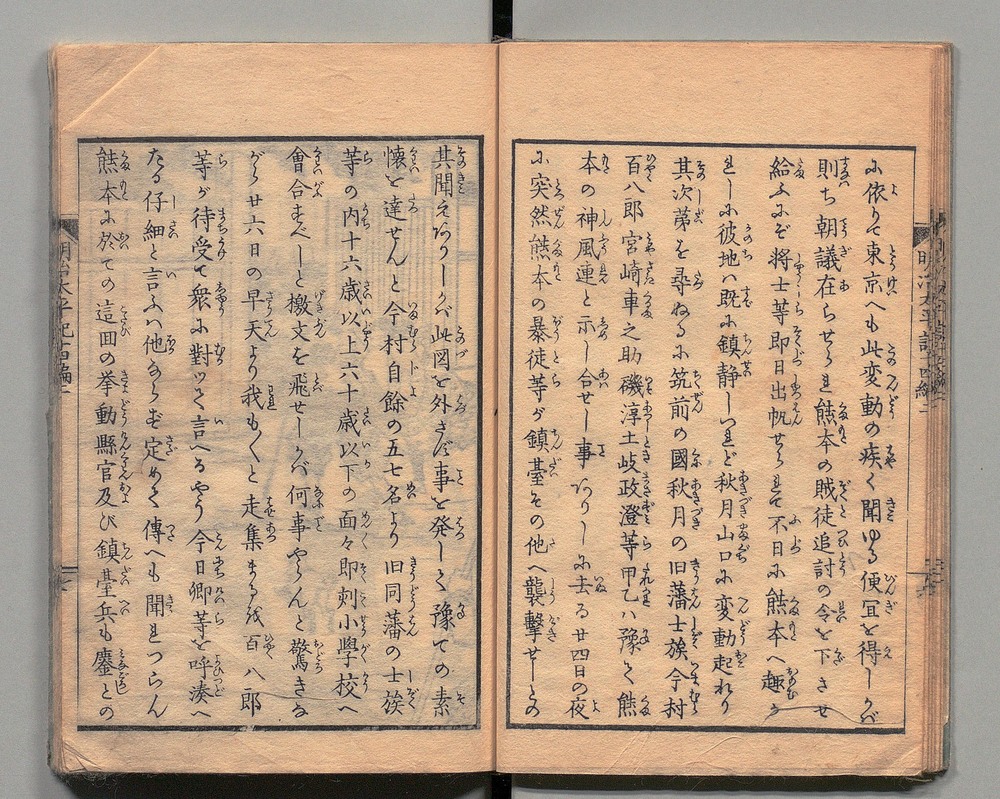 に依りて東京へも此変動の疾く聞ゆる便宜を得しかバ
則ち朝議在らせられ熊本の賊徒追討の令を下させ
給ふにぞ将士等即日出帆せられて不日に熊本へ趣か
れしに彼地ハ既に鎮静しつれど秋月山口に変動起れり
其次第を尋ぬるに筑前の國秋月の旧藩士族今村
百八郎宮崎車之助磯淳土岐政澄等甲乙ハ豫て熊
本の神風連と示し合せし事ありしに去る廿四日の夜
に突然熊本の暴徒等が鎮臺その他へ襲撃せしとの
其聞えありしかバ此図を外さず事を発して豫ての素
懐を達せんと今村自餘の五七名より旧同藩の士族
等の内十六歳以上六十歳以下の面々即刻小學校へ
會合すべしと檄文を飛せしかバ何事やらんと驚きな
がら廿六日の早天より我も〳〵と走集まるを百八郎
等が待受て衆に對ツて言へるやう今日卿等を呼湊へ
たる仔細と言ふハ他ならず定めて傳へも聞れつらん
熊本に於ての這回の挙動縣官及び鎮臺兵も鏖との
明治太平記十四編二